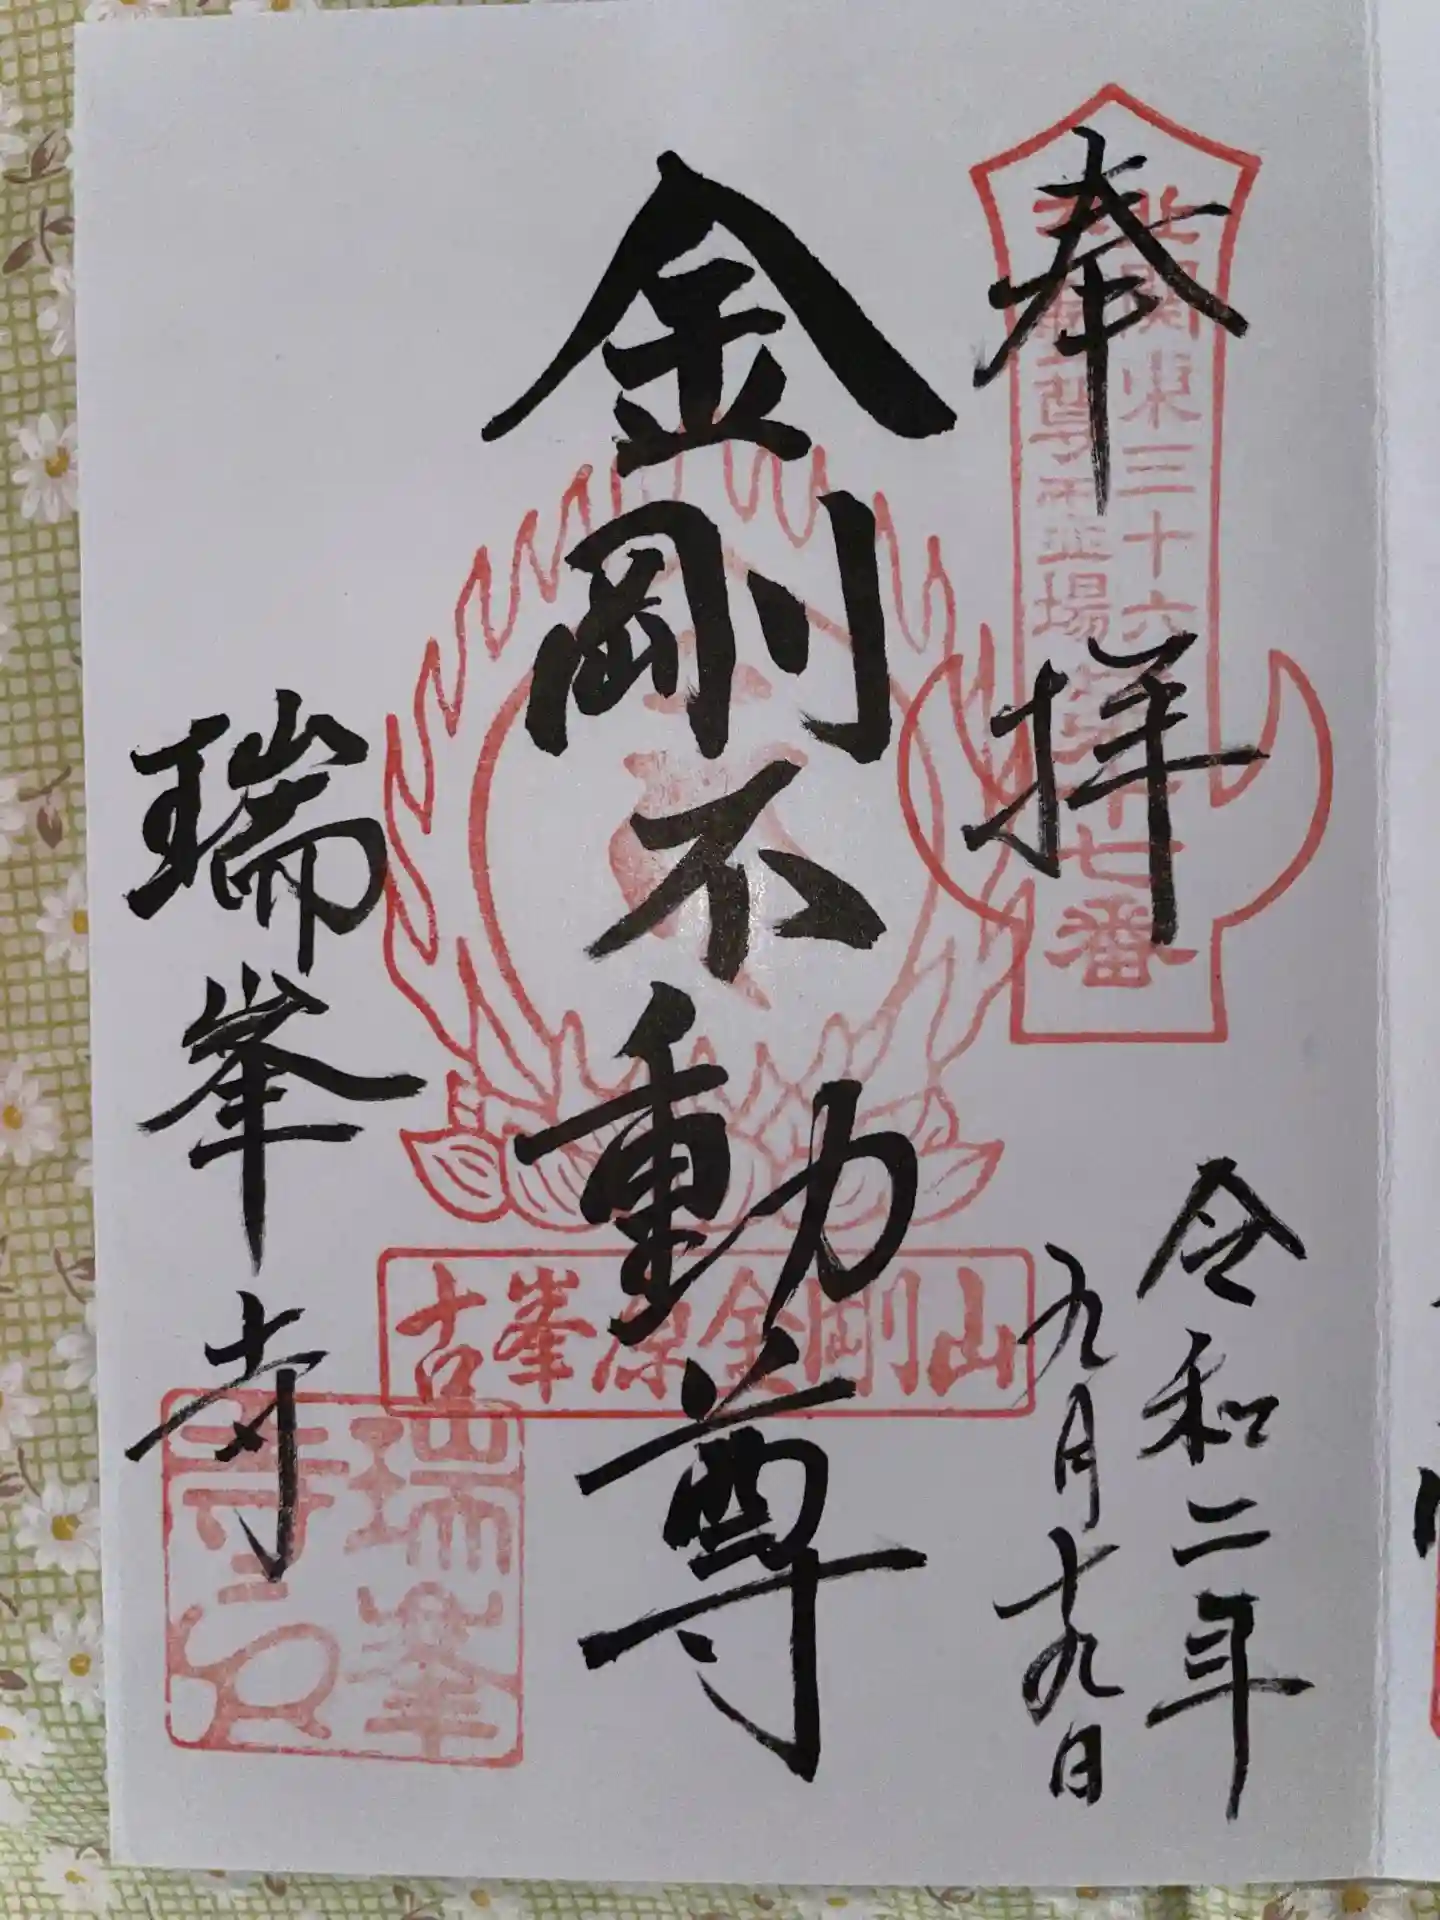 奉拝
北関東三十六
不動尊霊場
第十七番
令和二年
九月十九日
金剛不動尊
古峯原金剛山
瑞峯寺
瑞峯
寺